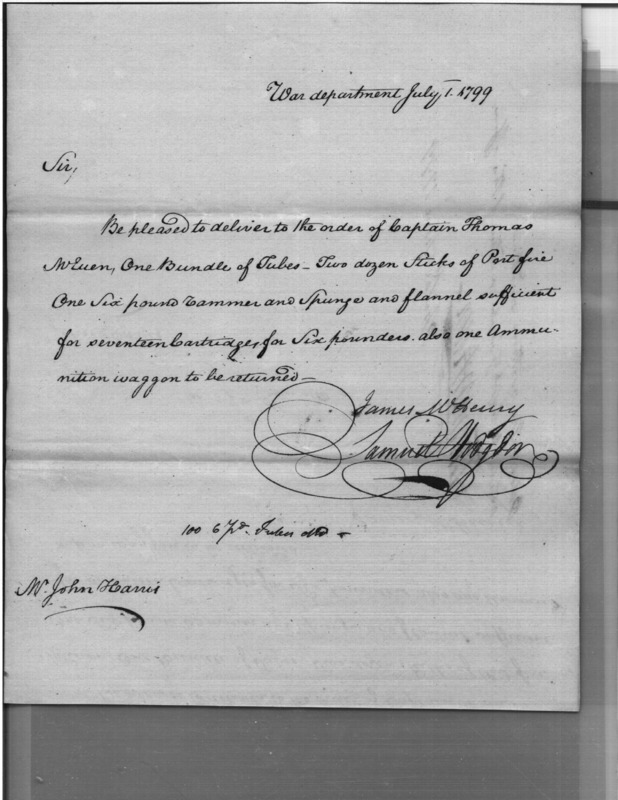 War department July 1. 1799
Sir,
Be pleased to deliver to the order of Captain Thomas
McEuen, One Bundle of Tubes - Two dozen Sticks of Port fire
One Six pound rammer and Spunge and flannel sufficient
for seventeen Cartridges for Six pounders. also one Ammu-
nition waggon to be returned -
James McHenry
Samuel Hodgdon
100 6 Pd. Tubes
Mr. John Harris